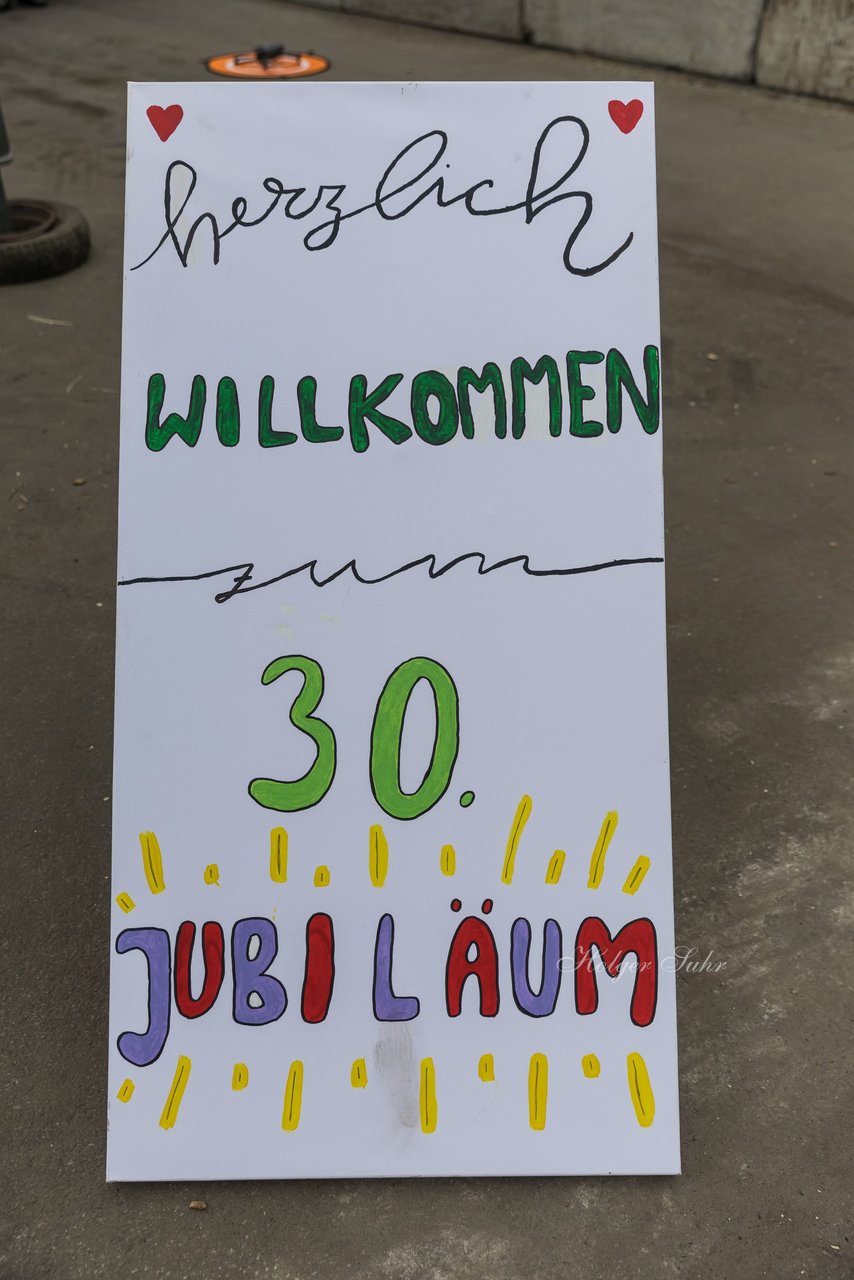 herzlich
WILLKOMMEN
zum
30.
JUBILÄUM
Holger Suhr